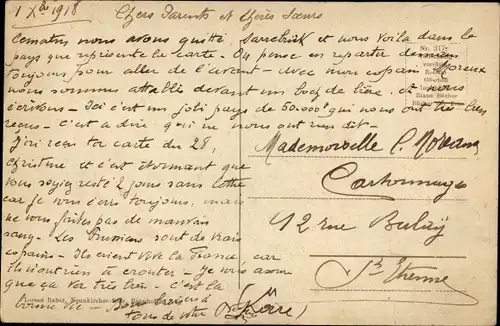 1 Xbre 1918
Chers Parents et Chères Sœurs
Ce matin nous avons quitté Sarrebrück et nous voilà dans le
pays que représente la carte. On pense en repartir demain
toujours pour aller de l'avant, avec mon copain Moreux
nous sommes attablés devant un boc de bière, et nous
écrivons - Ici c'est un joli pays de 50.000 h qui nous ont très bien
reçus - C'est à dire qui ne nous ont rien dit -
J'ai reçu ta carte du 28,
Christine et c'est étonnant que
vous soyez resté 2 jours sans lettre
car je vous écris toujours, mais
ne vous faites pas de mauvais
sang - Les Prussiens sont de vrais
copains - Ils crient Vive la France car
ils à croûter - Je vous assure
que ça va très bien - C'est la
bonne vie - Bons baisers à
tous de votre
Mademoiselle C.
Cartonnages
42 rue Bulay
St Etienne
Nr. 317
Lorenz Rabar, Neunkirchen